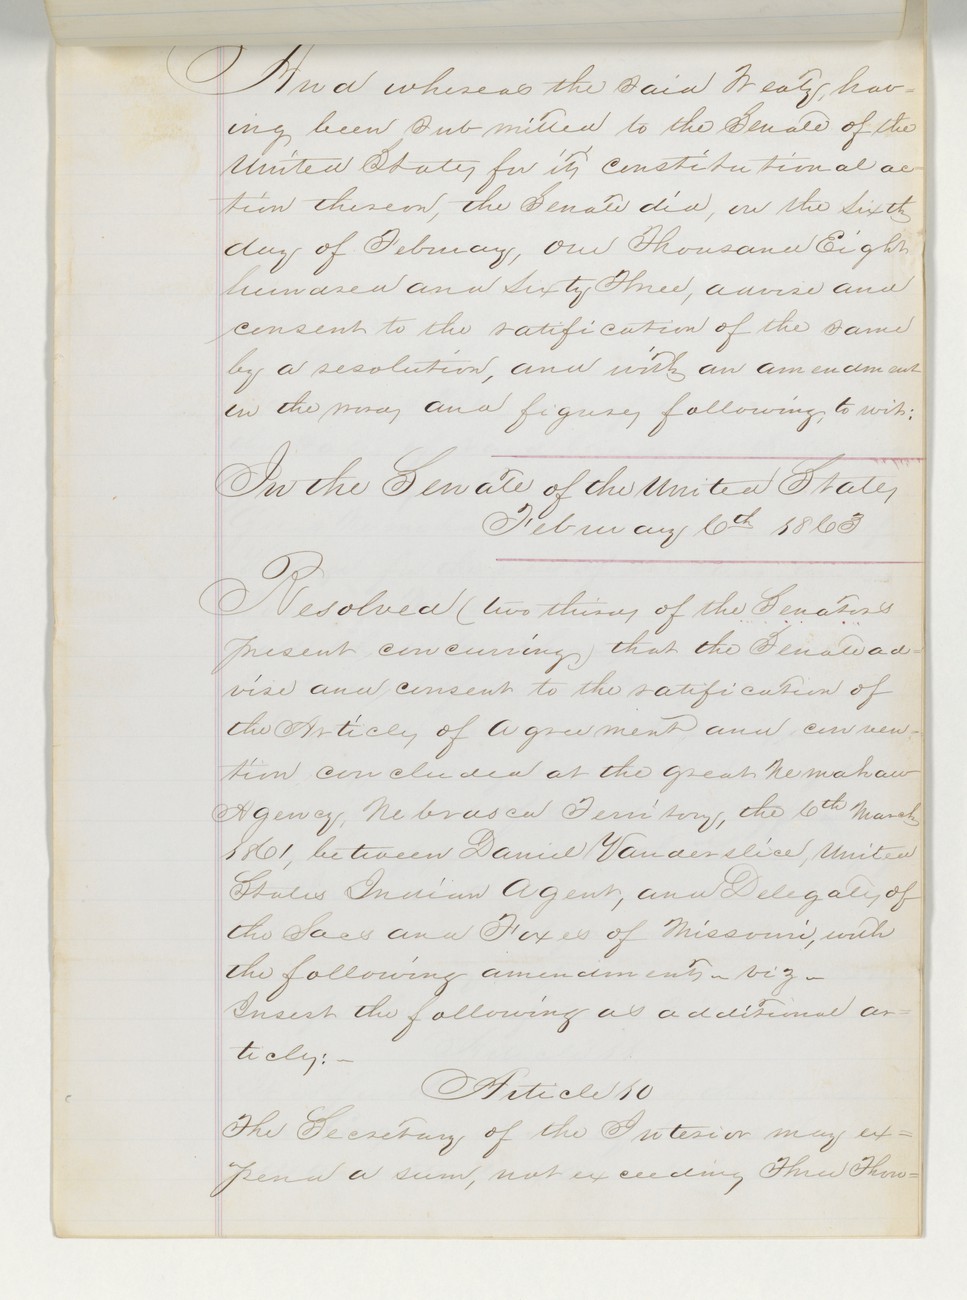 And whereas the said Treaty, hav=
ing been submitted to the Senate of the
United States for its constitutional ac-
tion thereon, the Senate did, on the sixth
day of February, One Thousand Eight
hundred and sixty Three, advise and
consent to the ratification of the same
by a resolution, and with an amendment
in the words and figures following, to wit:
In the Senate of the United States
February 6th 1863
Resolved (two thirds of the Senators
present concurring) that the Senate ad=
vise and consent to the ratification of
the Articles of Agreement and conven-
tion concluded at the great Nemahaw
Agency, Nebrasca Territory, the 6th March
1861, between Daniel Vanderslice, United
States Indian Agent, and Delegates of
the Sacs and Foxes of Missouri, with
the following amendments - viz -
Insert the following as additional ar=
ticles: -
Article 10
The Secretary of the Interior may ex=
pend a sum, not exceeding Three Thou=